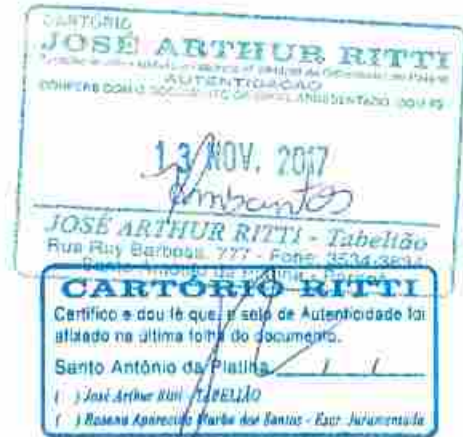 CARTÓRIO
JOSÉ ARTHUR RITTI
AUTENTICAÇÃO
CONFERE COM O APRESENTADO. DOU FÉ
13 NOV. 2017
JOSÉ ARTHUR RITTI - Tabelião
Rua Ruy Barbosa, 777 - Fone: 3534-3834
Santo Antônio da Platina - Paraná
CARTÓRIO RITTI
Certifico e dou fé que, o selo de Autenticidade foi
afixado na última folha do documento.
Santo Antônio da Platina / /
( ) José Arthur Ritti - TABELIÃO
( ) Rosana Aparecida Marba dos Santos - Escr. Juramentada